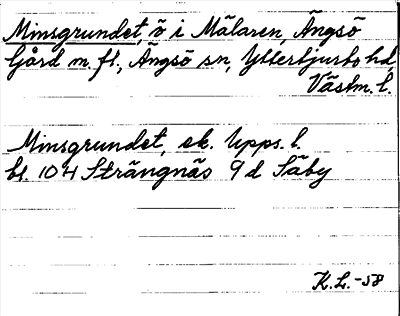 Minsgrundet, ö i Mälaren, Ängsö
Gård m. fl., Ängsö sn, Ytterbjurbo hd,
Västm. l.
Minsgrundet, ek. Upps. l.
bl. 104 Strängnäs 9 d Säby
K.L. -58